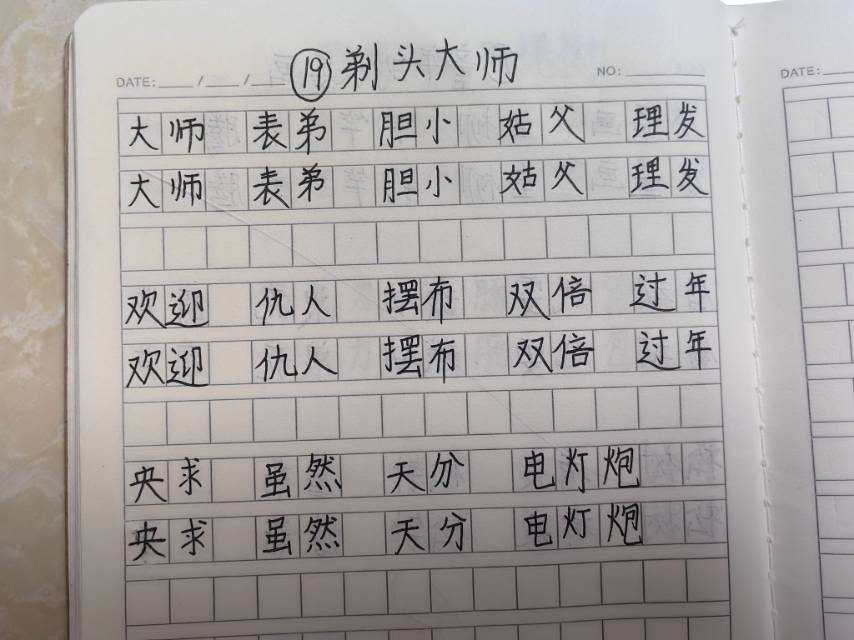 DATE: ___/___/___ ⑲剃头大师 NO: ______
大师 表弟 胆小 姑父 理发
大师 表弟 胆小 姑父 理发
欢迎 仇人 摆布 双倍 过年
欢迎 仇人 摆布 双倍 过年
央求 虽然 天分 电灯炮
央求 虽然 天分 电灯炮
DATE: